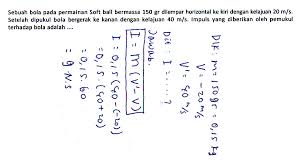 Sebuah bola pada permainan Soft ball bermassa 150 gr dilempar horizontal ke kiri dengan kelajuan 20 m/s.
Setelah dipukul bola bergerak ke kanan dengan kelajuan 40 m/s. Impuls yang diberikan oleh pemukul
terhadap bola adalah ....
Dik : m = 150 gr = 0,15 kg
V = -20 m/s
V' = 40 m/s
Dit : I = ..... ?
Jawab.
I = m (v' - v)
I = 0,15 (40 - (-20))
= 0,15 (40 + 20)
= 0,15 . 60
= 9 N.s